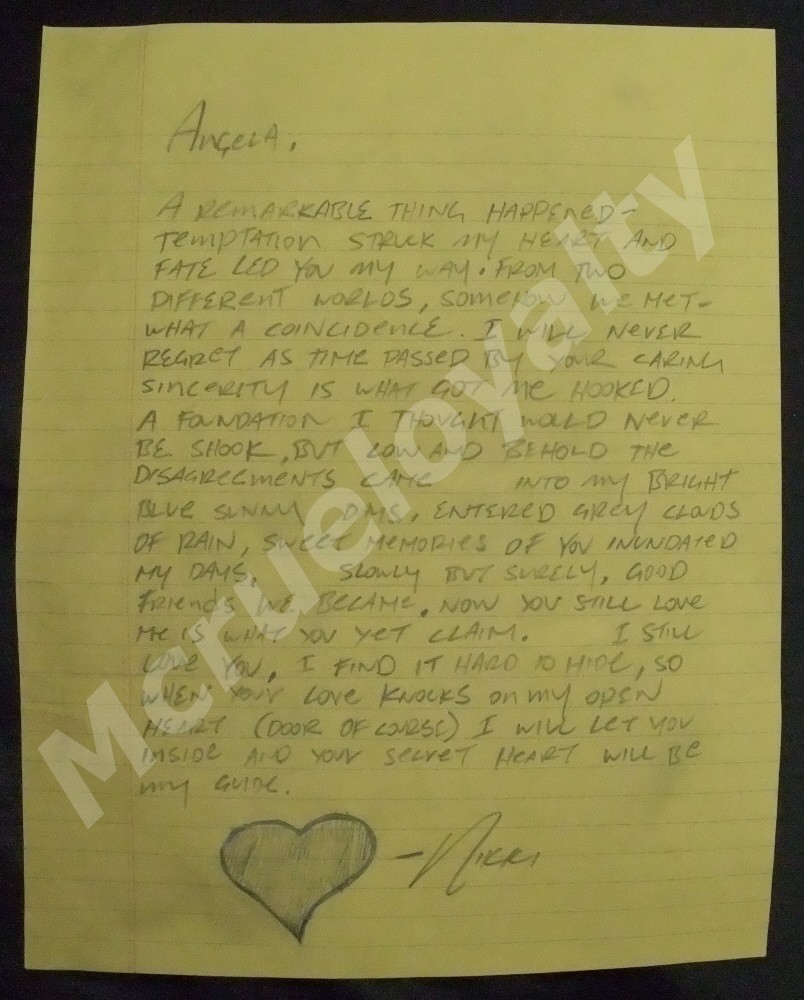 Angela,
A REMARKABLE THING HAPPENED-
TEMPTATION STRUCK MY HEART AND
FATE LED YOU MY WAY. FROM TWO
DIFFERENT WORLDS, SOMEHOW WE MET-
WHAT A COINCIDENCE. I WILL NEVER
REGRET AS TIME PASSED BY YOUR CARING
SINCERITY IS WHAT GOT ME HOOKED.
A FOUNDATION I THOUGHT WOULD NEVER
BE SHOOK, BUT LOW AND BEHOLD THE
DISAGREEMENTS CAME INTO MY BRIGHT
BLUE SUNNY DAYS, ENTERED GREY CLOUDS
OF RAIN, SWEET MEMORIES OF YOU INUNDATED
MY DAYS. SLOWLY BUT SURELY, GOOD
FRIENDS WE BECAME, NOW YOU STILL LOVE
ME IS WHAT YOU YET CLAIM. I STILL
LOVE YOU, I FIND IT HARD TO HIDE, SO
WHEN YOUR LOVE KNOCKS ON MY OPEN
HEART (DOOR OF COURSE) I WILL LET YOU
INSIDE AND YOUR SECRET HEART WILL BE
MY GUIDE.
-Nikki
Mcrueloyalty